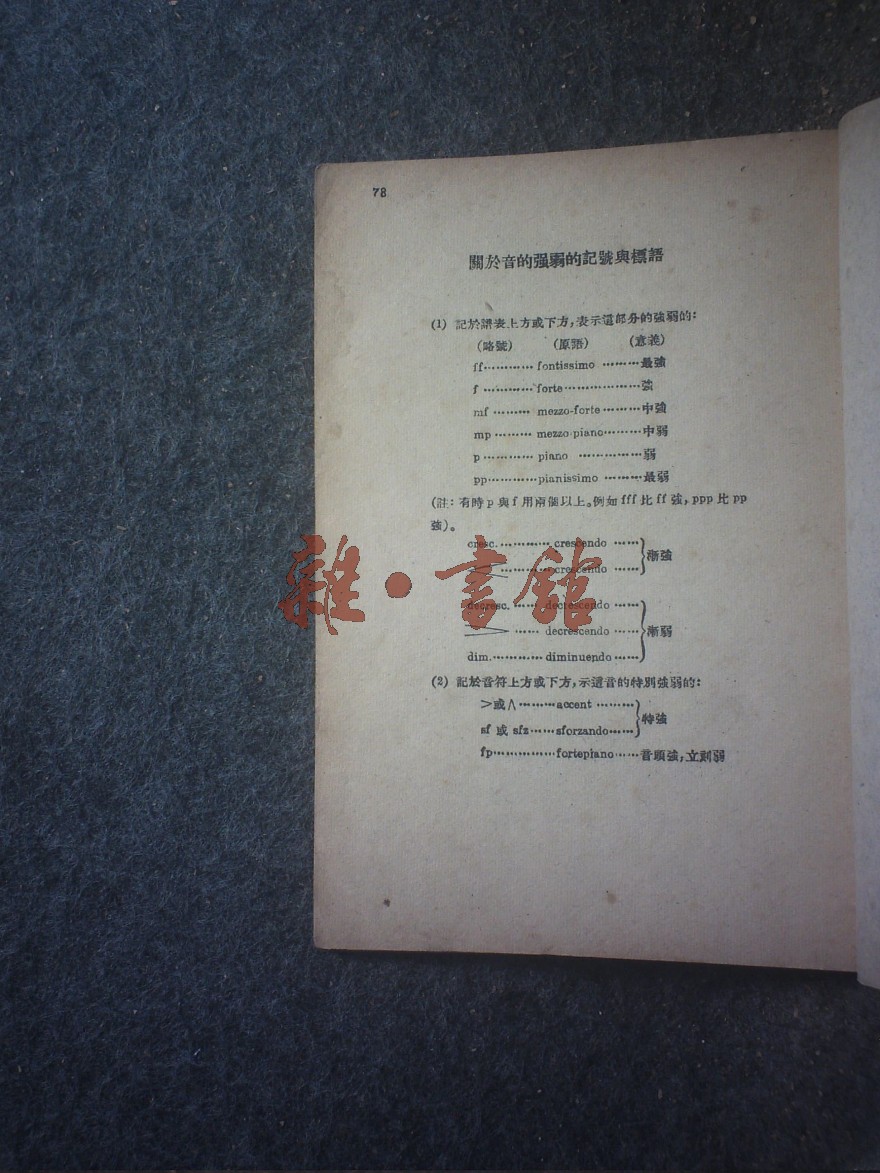 78
關於音的强弱的記號與標語
(1) 記於譜表上方或下方,表示這部分的強弱的:
(略號) (原語) (意義)
ff············ fontissimo ·········最強
f ············forte··················強
mf ········· mezzo-forte ·········中強
mp ········· mezzo piano·········中弱
p ············ piano ···············弱
pp············pianissimo ·········最弱
(註: 有時 p 與 f 用兩個以上。例如 fff 比 ff 強, ppp 比 pp
強)。
cresc. ············ crescendo ······
············ crescendo ······
漸強
decresc. ······ decrescendo ······
······ decrescendo ······
漸弱
dim.············ diminuendo ······
(2) 記於音符上方或下方,示這音的特別強弱的:
>或∧ ·········accent ·········
特強
sf 或 sfz ······sforzando······
fp···············fortepiano ······音頭強,立刻弱
雜·書館